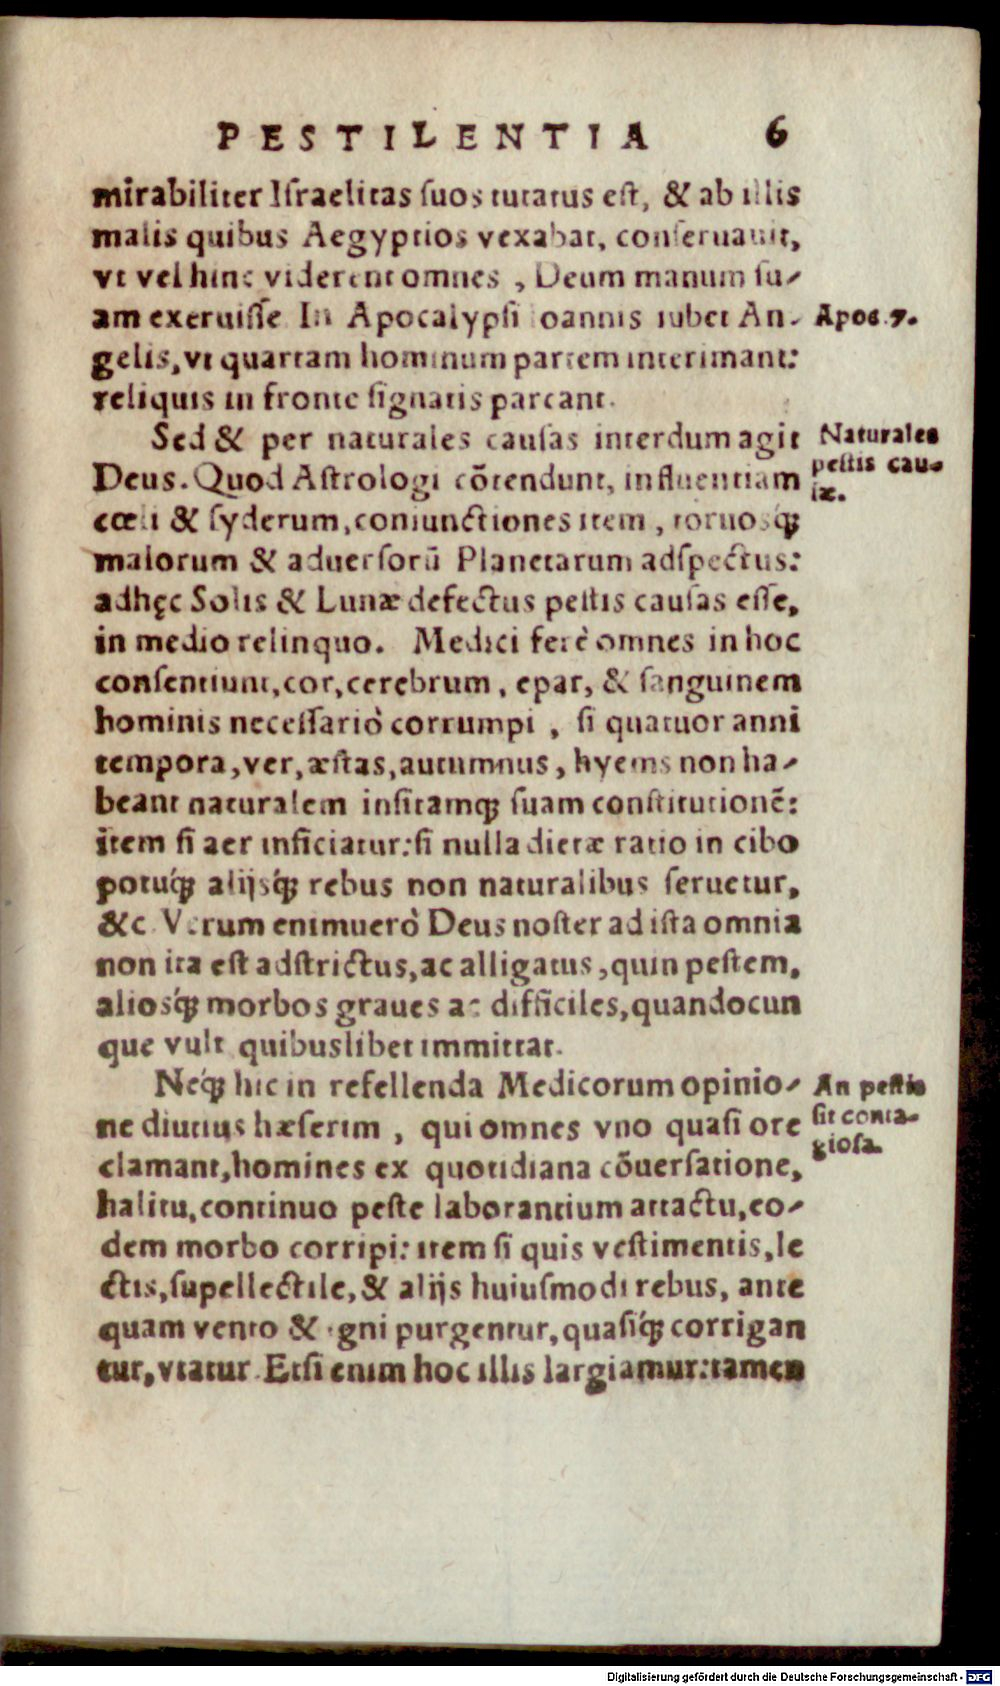 PESTILENTIA 6
mirabiliter Iſraelitas ſuos tutatus eſt, & ab illis
malis quibus Aegyptios vexabat, conſeruauit,
vt vel hinc viderent omnes , Deum manum ſu-
am exeruiſſe In Apocalypſi Ioannis iubet An-
Apoc. 7.
gelis, vt quartam hominum partem interimant:
reliquis in fronte ſignatis parcant.
Sed & per naturales cauſas interdum agit
Naturales
Deus. Quod Aſtrologi cõtendunt, influentiam
peſtis cau-
ſæ.
cœli & ſyderum, coniunctiones item , toruosq́;
malorum & aduerſorū Planetarum adſpectus:
adhęc Solis & Lunæ defectus peſtis cauſas eſſe,
in medio relinquo. Medici ferè omnes in hoc
conſentiunt, cor, cerebrum, epar, & ſanguinem
hominis neceſſariò corrumpi , ſi quatuor anni
tempora, ver, æſtas, autumnus, hyems non ha-
beant naturalem inſitamq; ſuam conſtitutionē:
item ſi aer inficiatur: ſi nulla dietæ ratio in cibo
potuq́; alijsq́; rebus non naturalibus ſeruetur,
&c. Verum enimuerò Deus noſter ad iſta omnia
non ita eſt adſtrictus, ac alligatus, quin peſtem,
aliosq́; morbos graues ac difficiles, quandocun
que vult quibuslibet immittat.
Neq́; hic in refellenda Medicorum opinio-
An peſtis
ne diutius hæſerim , qui omnes vno quaſi ore
ſit conta-
clamant, homines ex quotidiana cõuerſatione,
gioſa.
halitu, continuo peſte laborantium attactu, eo-
dem morbo corripi: item ſi quis veſtimentis, le
ctis, ſupellectile, & alijs huiuſmodi rebus, ante
quam vento & igni purgentur, quaſiq́; corrigan
tur, vtatur. Etſi enim hoc illis largiamur: tamen
Digitalisierung gefördert durch die Deutsche Forschungsgemeinschaft - DFG